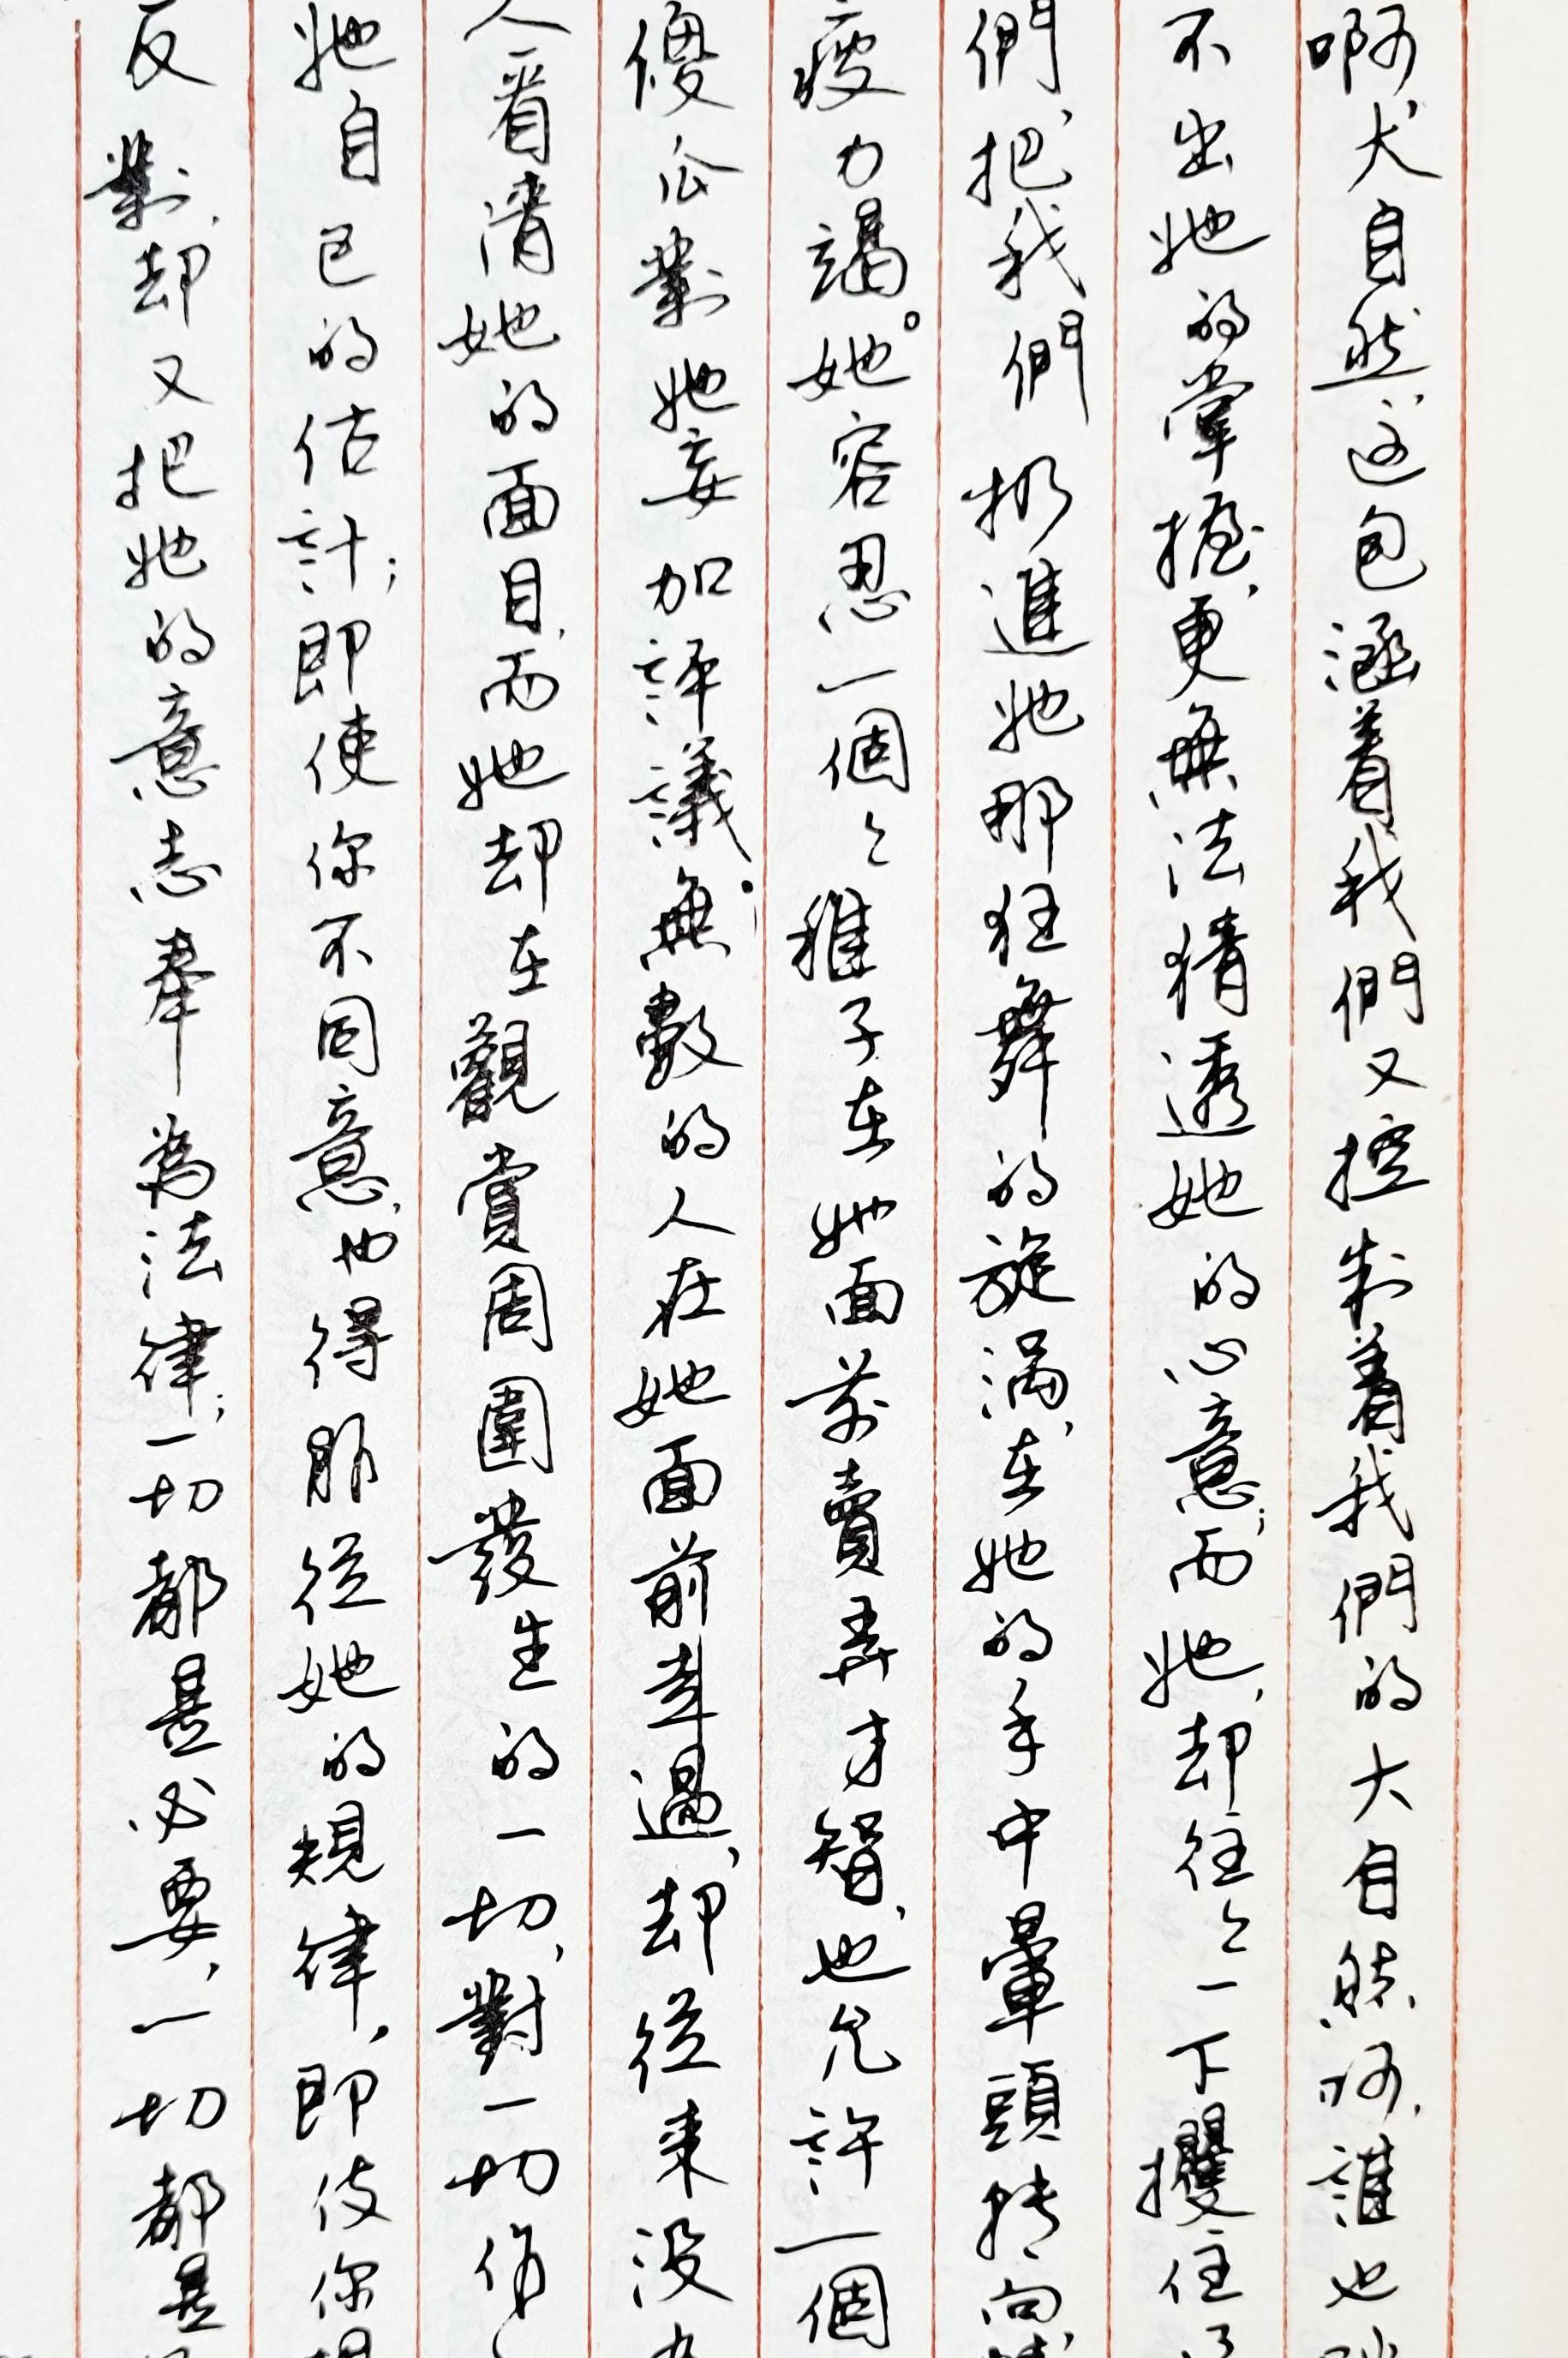 啊,大自然,這包涵着我們又控制着我們的大自然呵,誰也
不出她的掌握,更無法猜透她的心意;而她,却往々一下攫住
們,把我們扔進她那狂舞的旋渦,在她的手中暈頭转向,
疲力竭。她容忍一個々稚子在她面前賣弄才智,也允許一個
傻瓜對她妄加評議。無數的人在她面前走過,却從来没
人看清她的面目,而她却在觀賞周圍發生的一切,對一切
她自己的估計;即使你不同意,也得服從她的規律,即使你
反對,却又把她的意志奉為法律;一切都是必要,一切都是